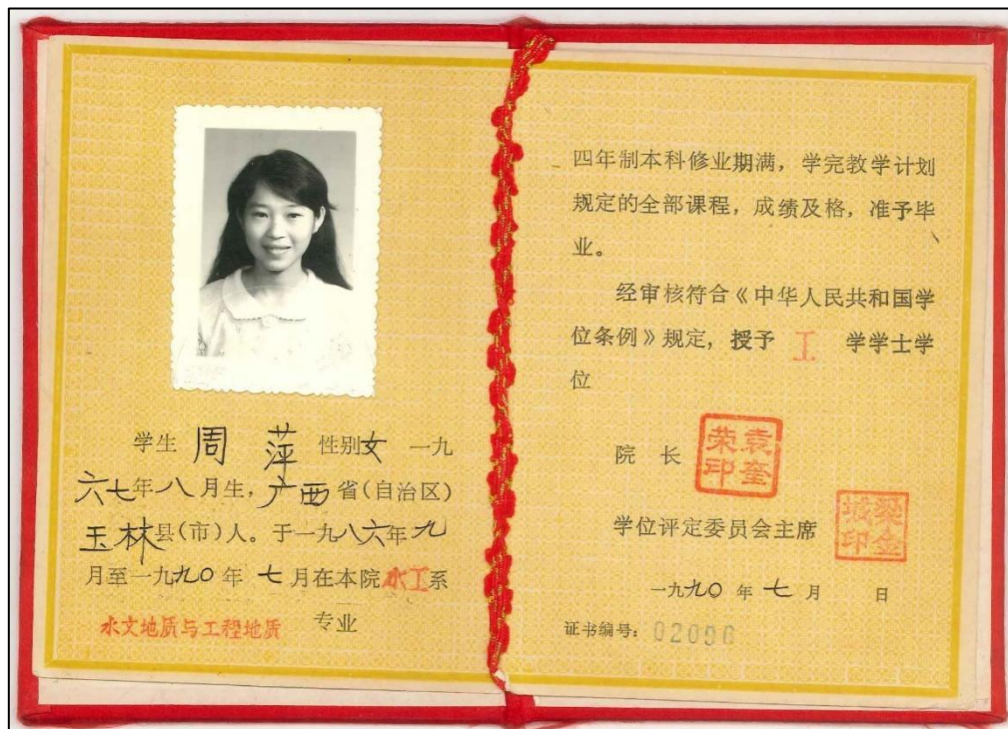 学生 周 萍 性别女 一九
六七年八月生，广西省(自治区)
玉林县(市)人。于一九八六年九
月至一九九〇年 七月在本院水工系
水文地质与工程地质 专业
四年制本科修业期满，学完教学计划
规定的全部课程，成绩及格，准予毕
业。
经审核符合《中华人民共和国学
位条例》规定，授予 工 学学士学
位
院 长 袁奎荣印
学位评定委员会主席 梁金城印
一九九〇 年 七 月 日
证书编号：